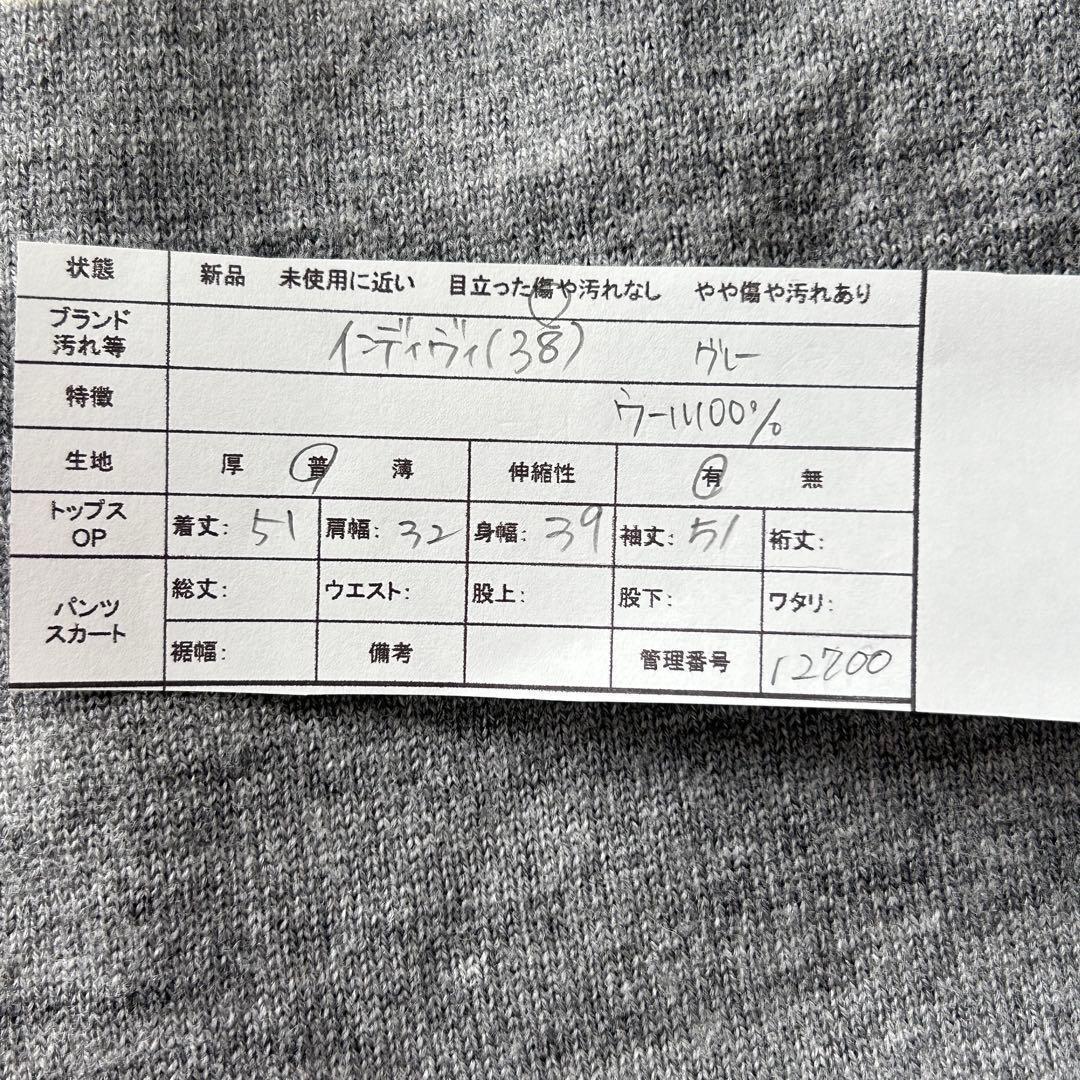 状態 新品 未使用に近い 目立った傷や汚れなし やや傷や汚れあり
ブランド
汚れ等 インディヴィ(38) グレー
特徴 ウール100%
生地 厚 普 薄 伸縮性 有 無
トップス
OP 着丈: 51 肩幅: 32 身幅: 39 袖丈: 51 裄丈:
パンツ
スカート 総丈: ウエスト: 股上: 股下: ワタリ:
裾幅: 備考 管理番号 12700